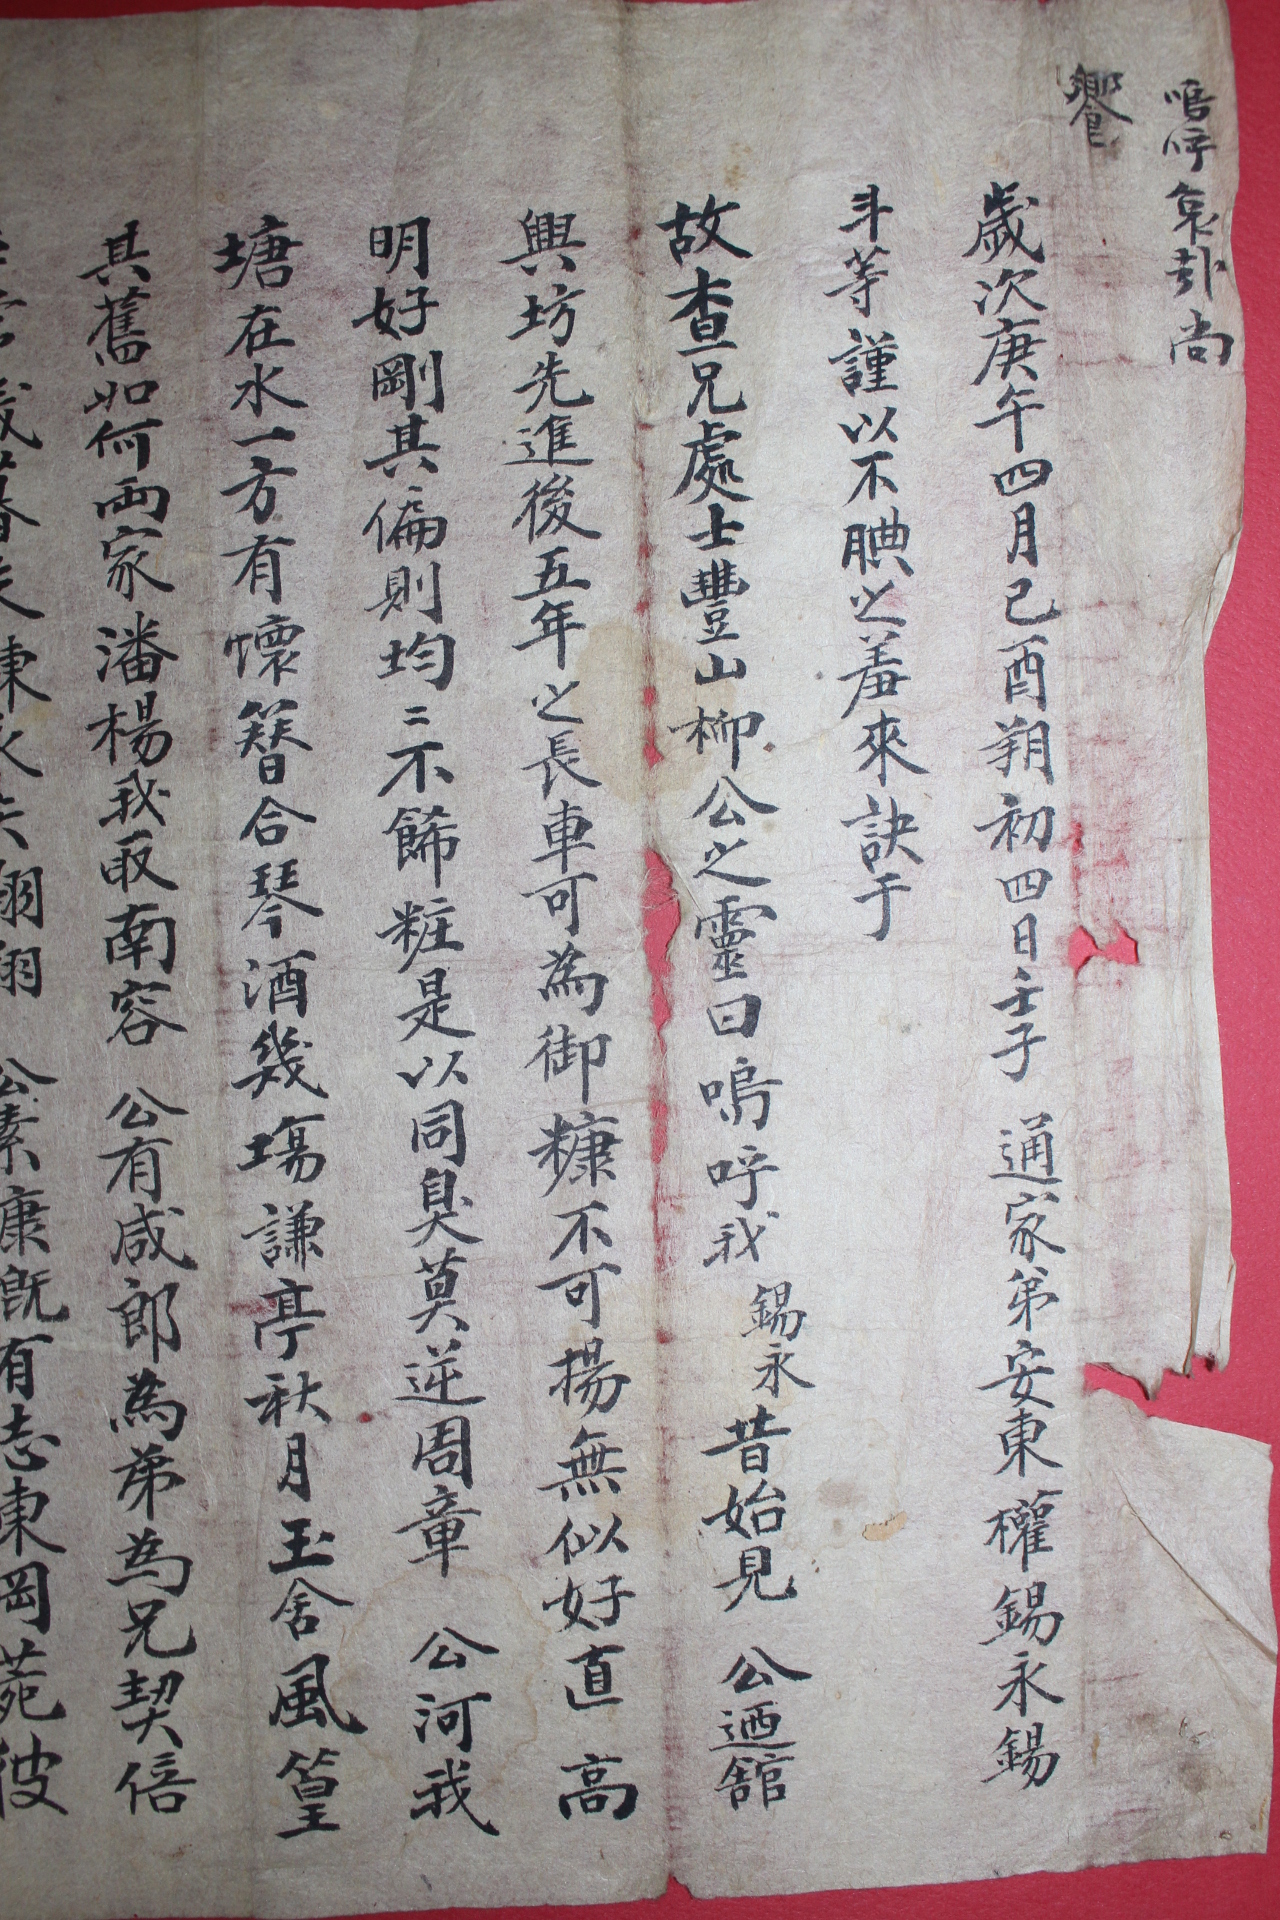 嗚呼哀哉尙
饗
歲次庚午四月己酉朔初四日壬子 通家弟安東權錫永錫
斗等謹以不腆之羞來訣于
故査兄處士豐山柳公之靈曰嗚呼我錫永昔始見 公迺舘
興坊先進後五年之長車可為御糠不可揚無似好直 高
明好剛其偏則均二不餙粧是以同臭莫逆周章 公河我
塘在水一方有懷簪合琴酒幾塲謙亭秋月玉舍風篁
其舊如何兩家潘楊我取南容 公有咸郎為弟為兄契倍
歲暮 東 翔翔 公素康旣有志東岡菀彼